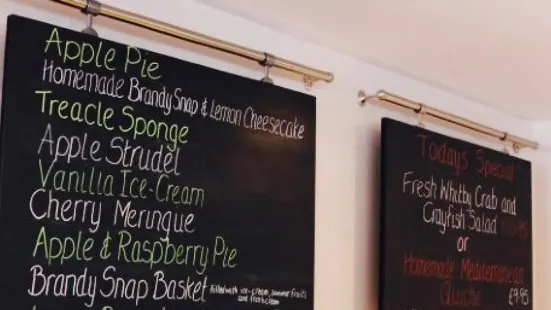 Apple Pie
Homemade Brandy Snap & Lemon Cheesecake
Treacle Sponge
Apple Strudel
Vanilla Ice-Cream
Cherry Meringue
Apple & Raspberry Pie
Brandy Snap Basket filled with ice-cream, summer fruits
and fresh cream
Todays Special
Fresh Whitby Crab and
Crayfish Salad
or
Homemade Mediterranean
Quiche £9.95